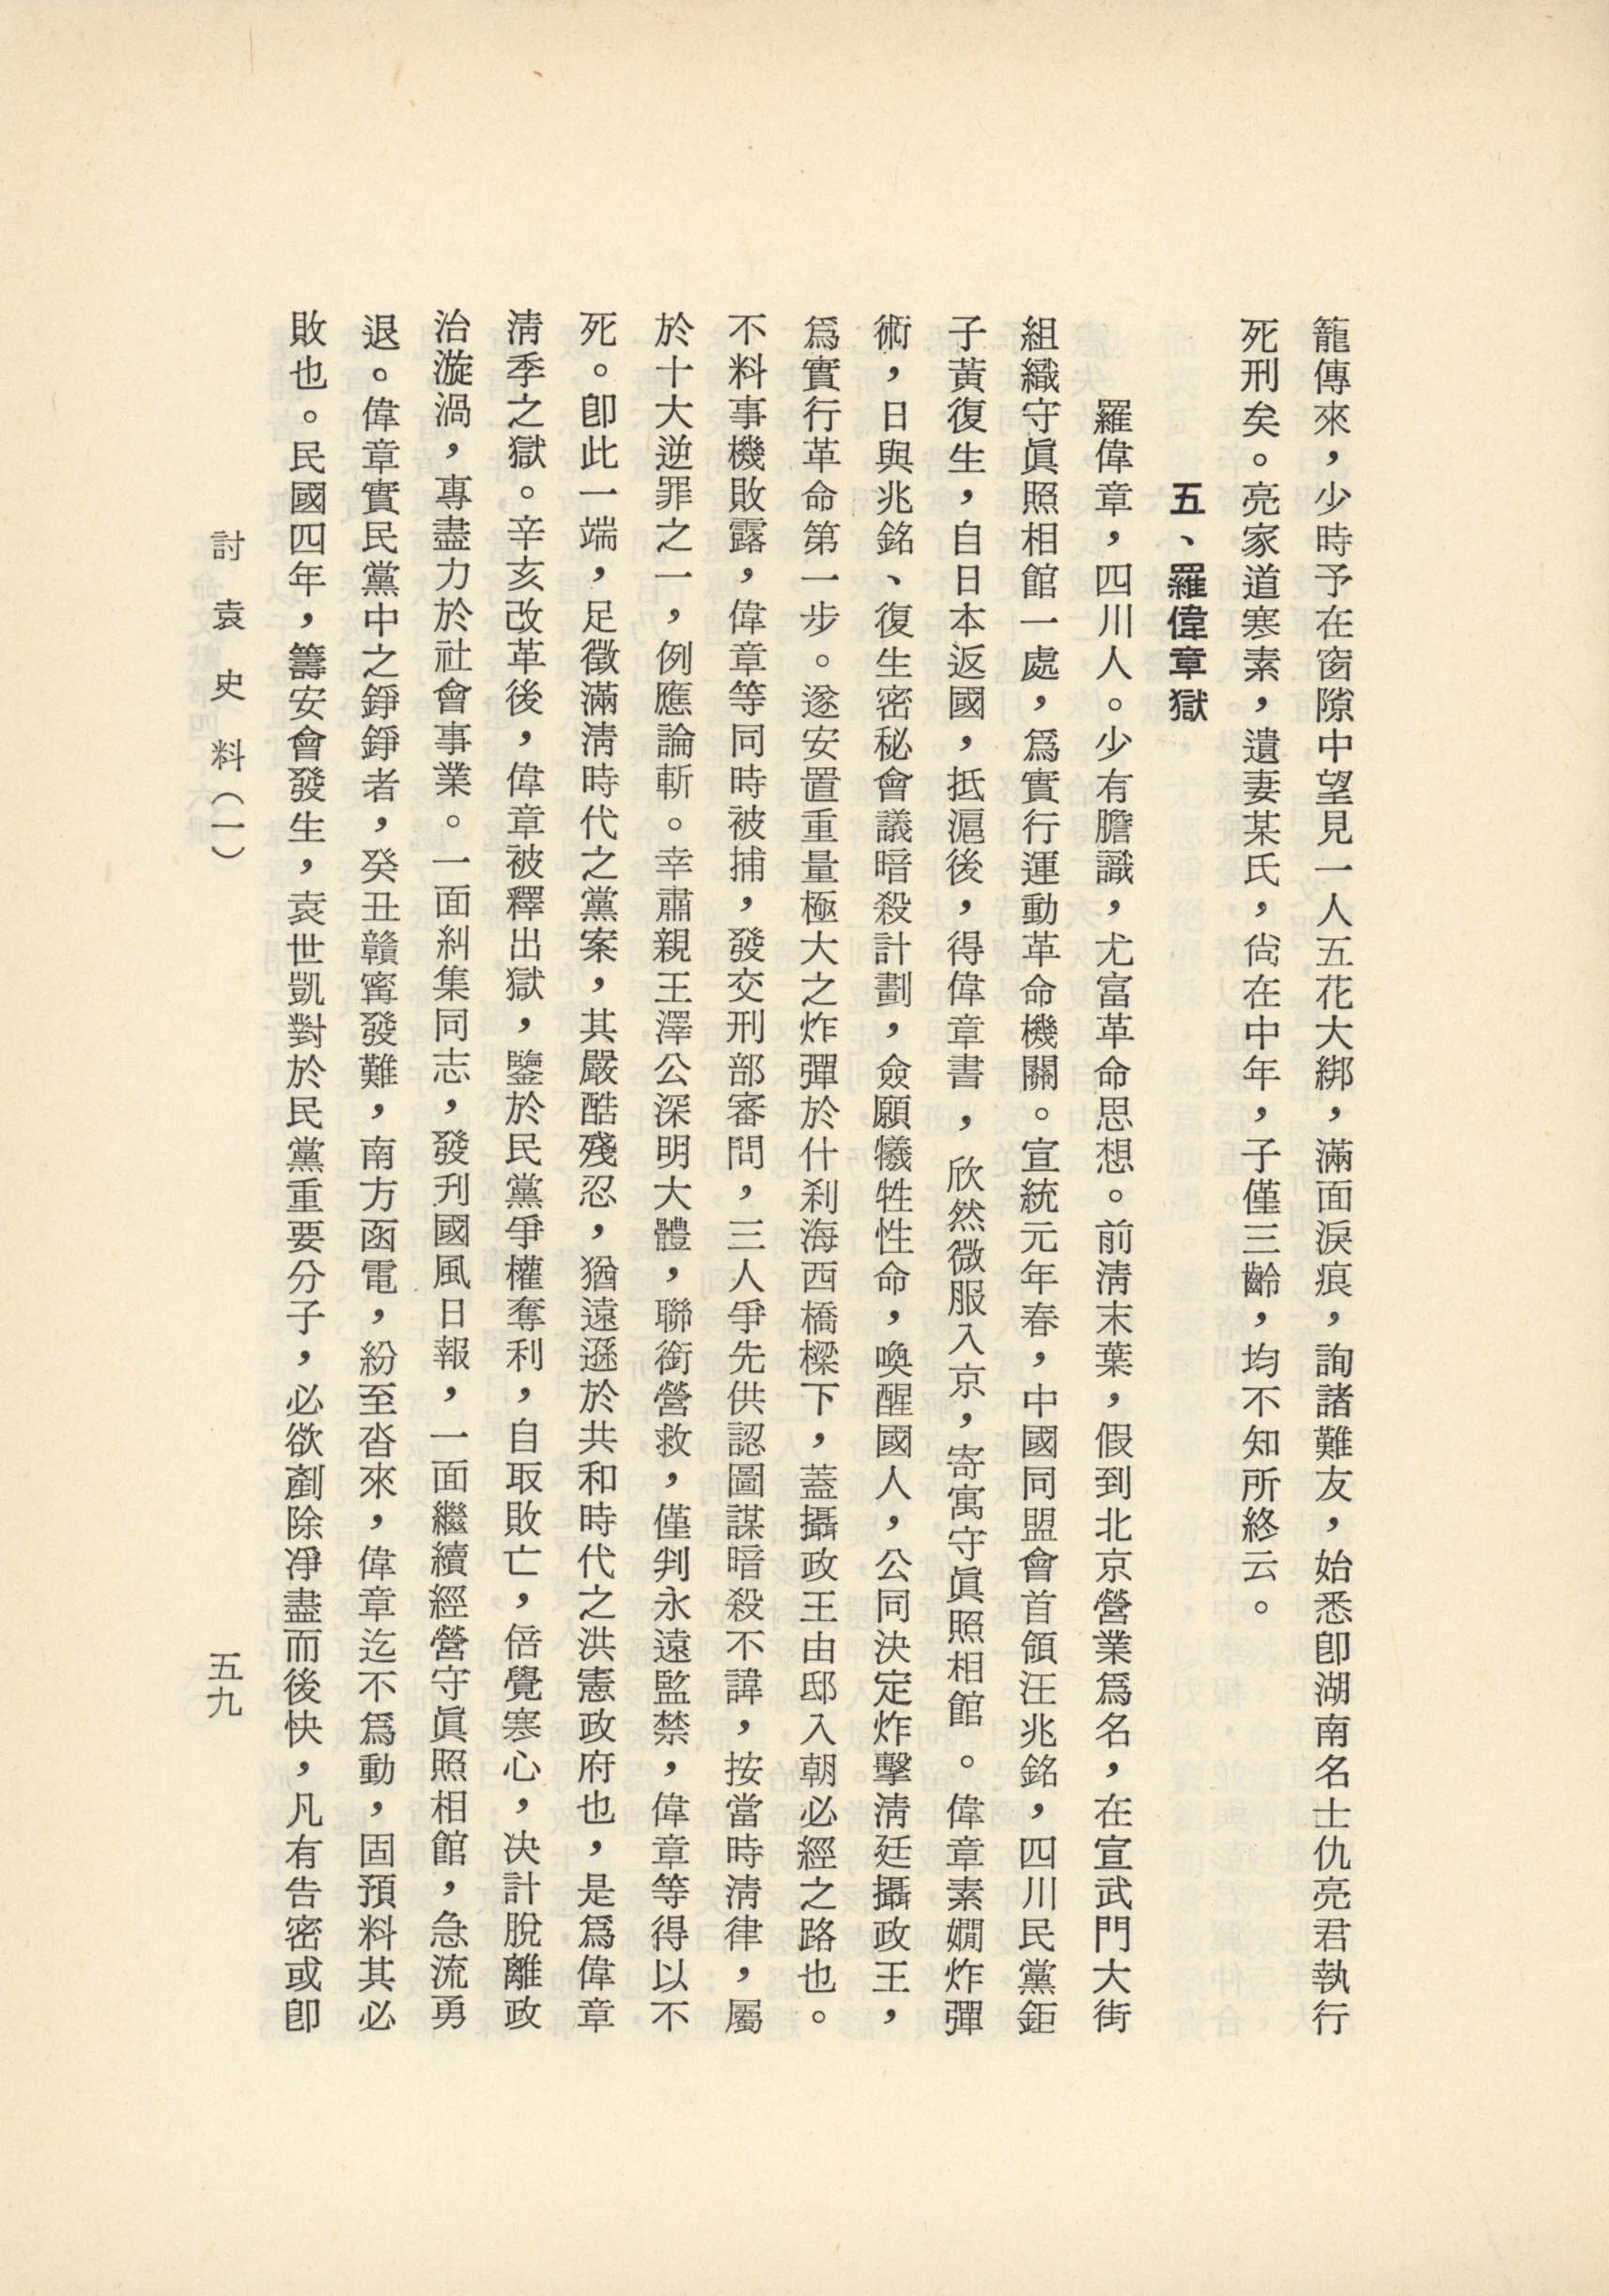 籠傳來，少時予在窗隙中望見一人五花大綁，滿面淚痕，詢諸難友，始悉卽湖南名士仇亮君執行
死刑矣。亮家道寒素，遺妻某氏，尙在中年，子僅三齡，均不知所終云。
五、羅偉章獄
羅偉章，四川人。少有膽識，尤富革命思想。前淸末葉，假到北京營業爲名，在宣武門大街
組織守眞照相館一處，爲實行運動革命機關。宣統元年春，中國同盟會首領汪兆銘，四川民黨鉅
子黃復生，自日本返國，抵滬後，得偉章書，欣然微服入京，寄寓守眞照相館。偉章素嫺炸彈
術，日與兆銘、復生密秘會議暗殺計劃，僉願犧牲性命，喚醒國人，公同決定炸擊淸廷攝政王，
爲實行革命第一步。遂安置重量極大之炸彈於什刹海西橋樑下，蓋攝政王由邸入朝必經之路也。
不料事機敗露，偉章等同時被捕，發交刑部審問，三人爭先供認圖謀暗殺不諱，按當時淸律，屬
於十大逆罪之一，例應論斬。幸肅親王澤公深明大體，聯銜營救，僅判永遠監禁，偉章等得以不
死。卽此一端，足徵滿淸時代之黨案，其嚴酷殘忍，猶遠遜於共和時代之洪憲政府也，是爲偉章
淸季之獄。辛亥改革後，偉章被釋出獄，鑒於民黨爭權奪利，自取敗亡，倍覺寒心，決計脫離政
治漩渦，專盡力於社會事業。一面糾集同志，發刊國風日報，一面繼續經營守眞照相館，急流勇
退。偉章實民黨中之錚錚者，癸丑贛寗發難，南方函電，紛至沓來，偉章迄不爲動，固預料其必
敗也。民國四年，籌安會發生，袁世凱對於民黨重要分子，必欲剷除凈盡而後快，凡有告密或卽
討袁史料（一）
五九